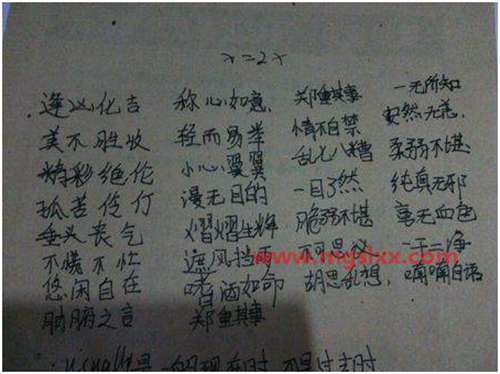 x=2x
逢凶化吉 称心如意. 郑重其事 一无所知
美不胜收 轻而易举 情不自禁 安然无恙.
精彩绝伦 小心翼翼 乱七八糟 柔弱不堪
孤苦伶仃 漫无目的 一目了然 纯真无邪
垂头丧气 熠熠生辉 脆弱不堪 毫无血色
不慌不忙 遮风挡雨 不可思议 一干二净
www.mgslxx.com
悠闲自在 嗜酒如命 胡思乱想, 喃喃自语
肺腑之言 郑重其事
一般现在时 不是过去时